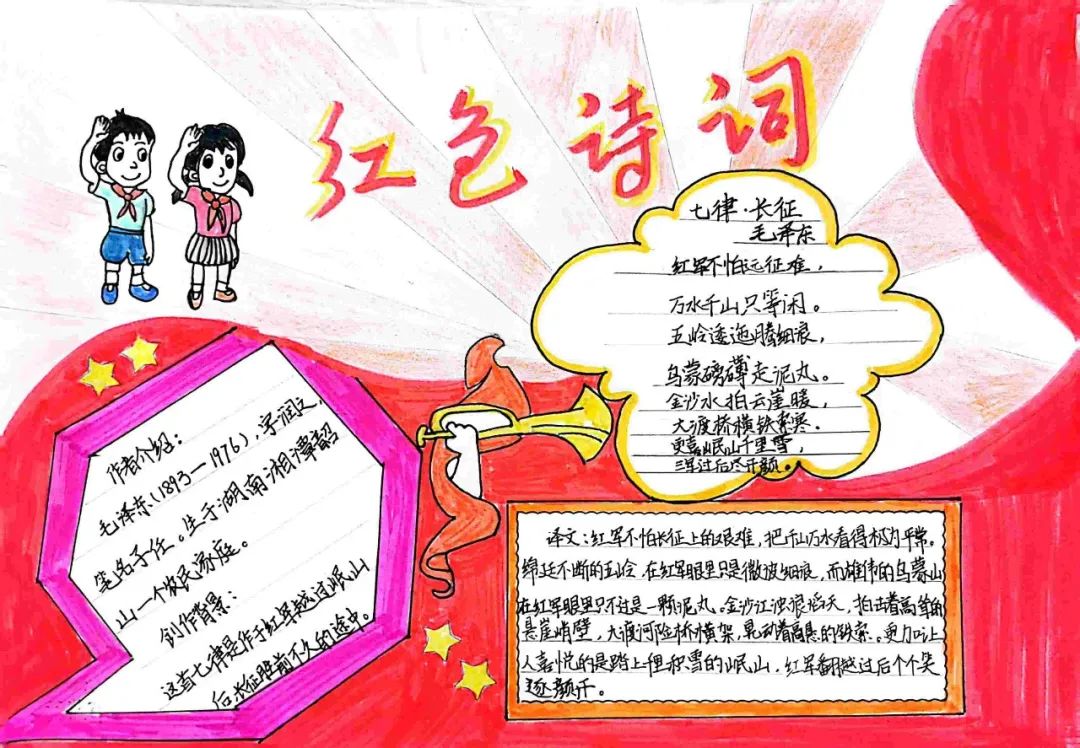 红色诗词
七律·长征
毛泽东
红军不怕远征难，
万水千山只等闲。
五岭逶迤腾细浪，
乌蒙磅礴走泥丸。
金沙水拍云崖暖，
大渡桥横铁索寒。
更喜岷山千里雪，
三军过后尽开颜。
作者介绍：
毛泽东（1893—1976），字润之，
笔名子任。生于湖南湘潭韶
山一个农民家庭。
创作背景：
这首七律是作于红军越过岷山
后长征胜前不久的途中。
译文：红军不怕长征上的艰难，把千山万水看得极为平常。
绵延不断的五岭，在红军眼里只是微波细浪，而雄伟的乌蒙山
在红军眼里只不过是一颗泥丸。金沙江波浪滔天，拍击着高耸的
悬崖峭壁，大渡河险桥横架，晃动着高悬的铁索。更加让
人喜悦的是踏上积雪的岷山，红军翻越过后个个笑
逐颜开。